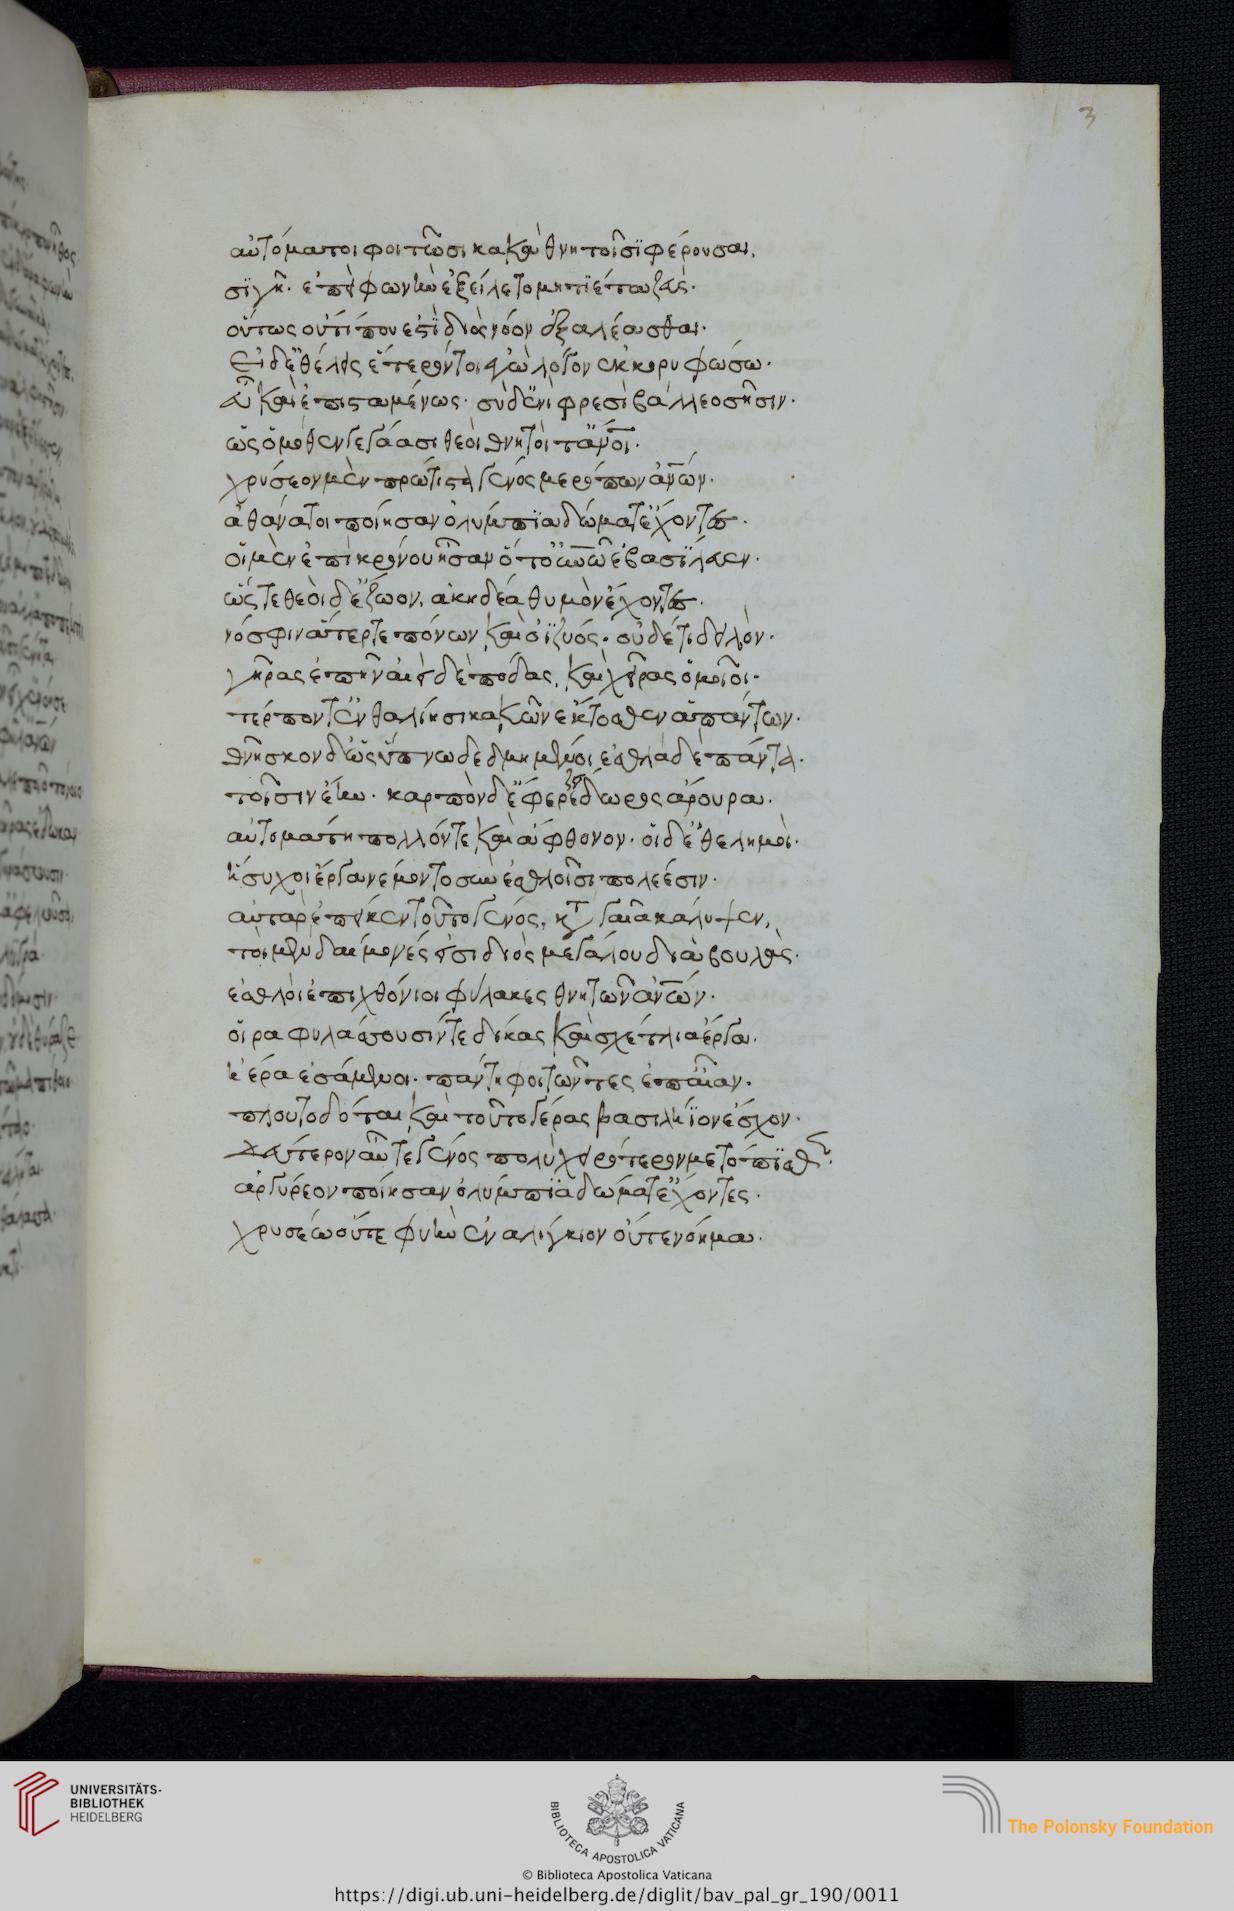 3
αὐτόματοι φοιτῶσι κακὰ θνητοῖσϊ φέρουσαι,
σϊγῆ· ἐπεὶ φωνὴν ἐξείλετο μητϊέτα ζεύς·
οὕτως οὔτί που ἐστὶ διὸς νόον ἐξαλέασθαι·
Εἰ δ' ἐθέλεις ἕτερόν τοι ἐγὼ λόγον ἐκκορυφώσω·
εὖ καὶ ἐπισταμένως· σὺ δ' ἐνὶ φρεσὶ βάλλεο σῆσιν·
ὡς ὁμόθεν γεγάασι θεοὶ θνητοί τ' ἄνοι·
χρύσεον μὲν πρώτιστα γένος μερόπων ἀνῶν·
ἀθάνατοι ποίησαν ὀλύμπϊα δώματ' ἔχοντες·
οἳ μὲν ἐπὶ κρόνου ἦσαν ὅτ' οὐνῶ ἐμβασΐλευεν·
ὥς τε θεοὶ δ' ἔζωον, ἀκηδέα θυμὸν ἔχοντες·
νόσφιν ἄτερ τε πόνων καὶ ὀϊζύος· οὐδέ τι δειλὸν·
γῆρας ἐπῆν αἰεὶ δὲ πόδας, καὶ χεῖρας ὁμοῖοι·
τέρποντ' ἐν θαλίησι κακῶν ἔκτοσθεν ἁπάντων·
θνῆσκον δ' ὡς ὕπνω δεδμημένοι ἐσθλὰ δὲ πάντα·
τοῖσιν ἔην· καρπὸν δ' ἔφερε ζείδωρος ἄρουρα·
αὐτομάτη πολλόν τε καὶ ἄφθονον· οἳ δ' ἐθελημοὶ·
ἥσυχοι ἔργα νέμοντο σὺν ἐσθλοῖσι πολέεσιν·
αὐτὰρ ἐπεί κεν τοῦτο γένος, κτ γαῖα κάλυψεν,
τοὶ μὲν δαίμονές εἰσι διὸς μεγάλου διὰ βουλὰς·
ἐσθλοὶ ἐπιχθόνιοι φύλακες θνητῶν ἀνῶν·
οἵ ρα φυλάσσουσίν τε δίκας καὶ σχέτλια ἔργα·
ἠέρα ἑσάμενοι· πάντη φοιτῶντες ἐπ' αἶαν·
πλουτοδόται καὶ τοῦτο γέρας βασιλήϊον ἔσχον·
Δεύτερον αὖτε γένος πολὺ χειρότερον μετόπϊσθεν·
ἀργύρεον ποίησαν ὀλύμπϊα δώματ' ἔχοντες·
χρυσέω οὔτε φυὴν ἐναλίγκιον οὔτε νόημα·
UNIVERSITÄTS-
BIBLIOTHEK
HEIDELBERG
BIBLIOTECA APOSTOLICA VATICANA
The Polonsky Foundation
© Biblioteca Apostolica Vaticana
https://digi.ub.uni-heidelberg.de/diglit/bav_pal_gr_190/0011